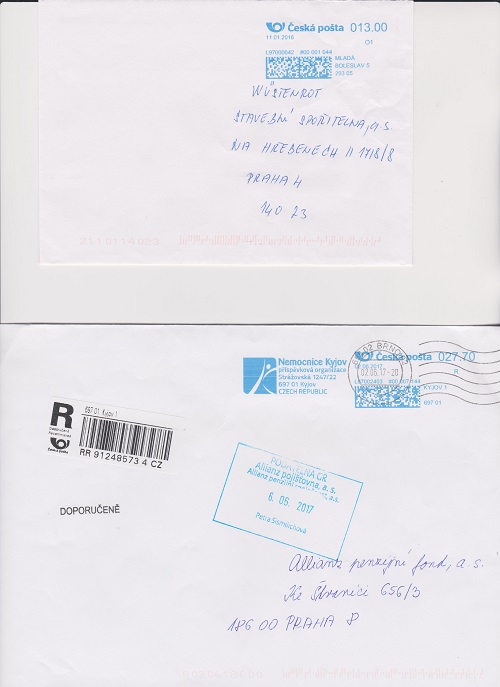 Česká pošta 013.00
11 01 2016 O1
L97000042 #00 001 044
MLADÁ
BOLESLAV 5
293 05
WÜSTENROT
STAVEBNÍ SPOŘITELNA, a.s.
NA HŘEBENECH II 1718/8
PRAHA 4
140 23
Nemocnice Kyjov
příspěvková organizace
Strážovská 1247/22
697 01 Kyjov
CZECH REPUBLIC
02 BRNO
02.06.17-20
Česká pošta 027.70
R
KYJOV 1
697 01
R
Doporučeně
Recommandé
Česká pošta
697 01 Kyjov 1
RR 91248573 4 CZ
DOPORUČENĚ
PODATELNA GŘ
Allianz pojišťovna, a. s.
Allianz penzijní a.s.
6. 06. 2017
Petra
Allianz penzijní fond, a.s.
Ke Štvanici 656/3
186 00 PRAHA 8